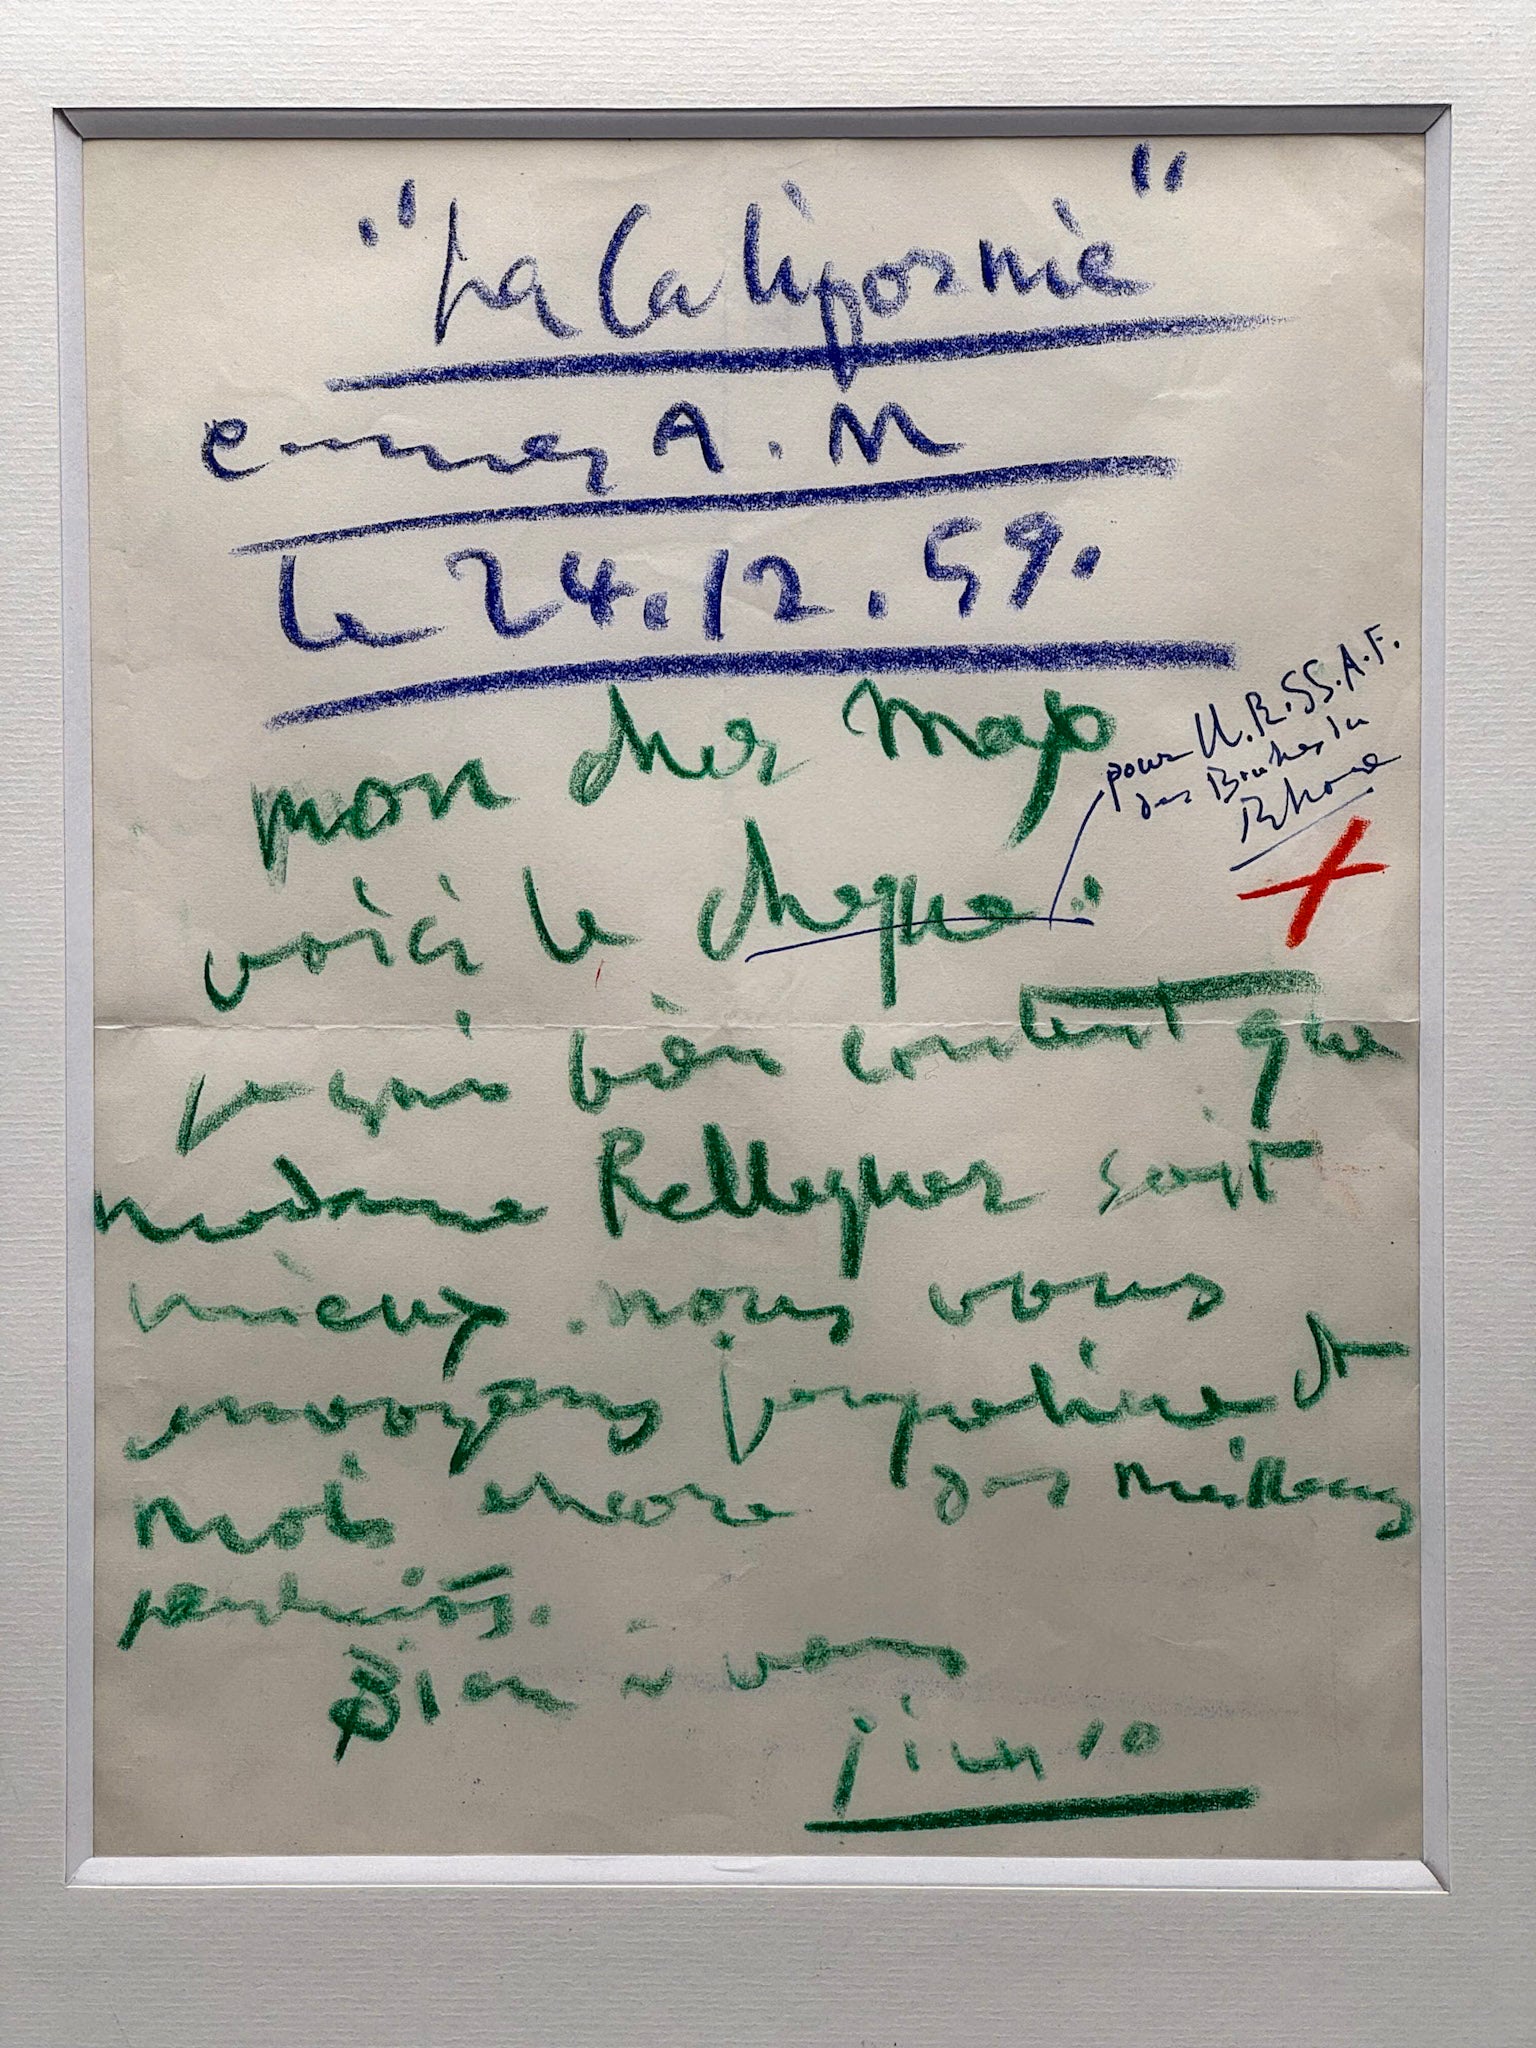 "La Californie"
Cannes A. M
le 24.12.59.
mon cher Max
pour U.R.SS.A.F.
des Bouches du
Rhone
voici le cheque..
je suis bien content que
madame Pellequer soit
mieux. nous vous
envoyons jacqueline et
moi encore des meilleurs
pensées.
Bien à vous
Picasso